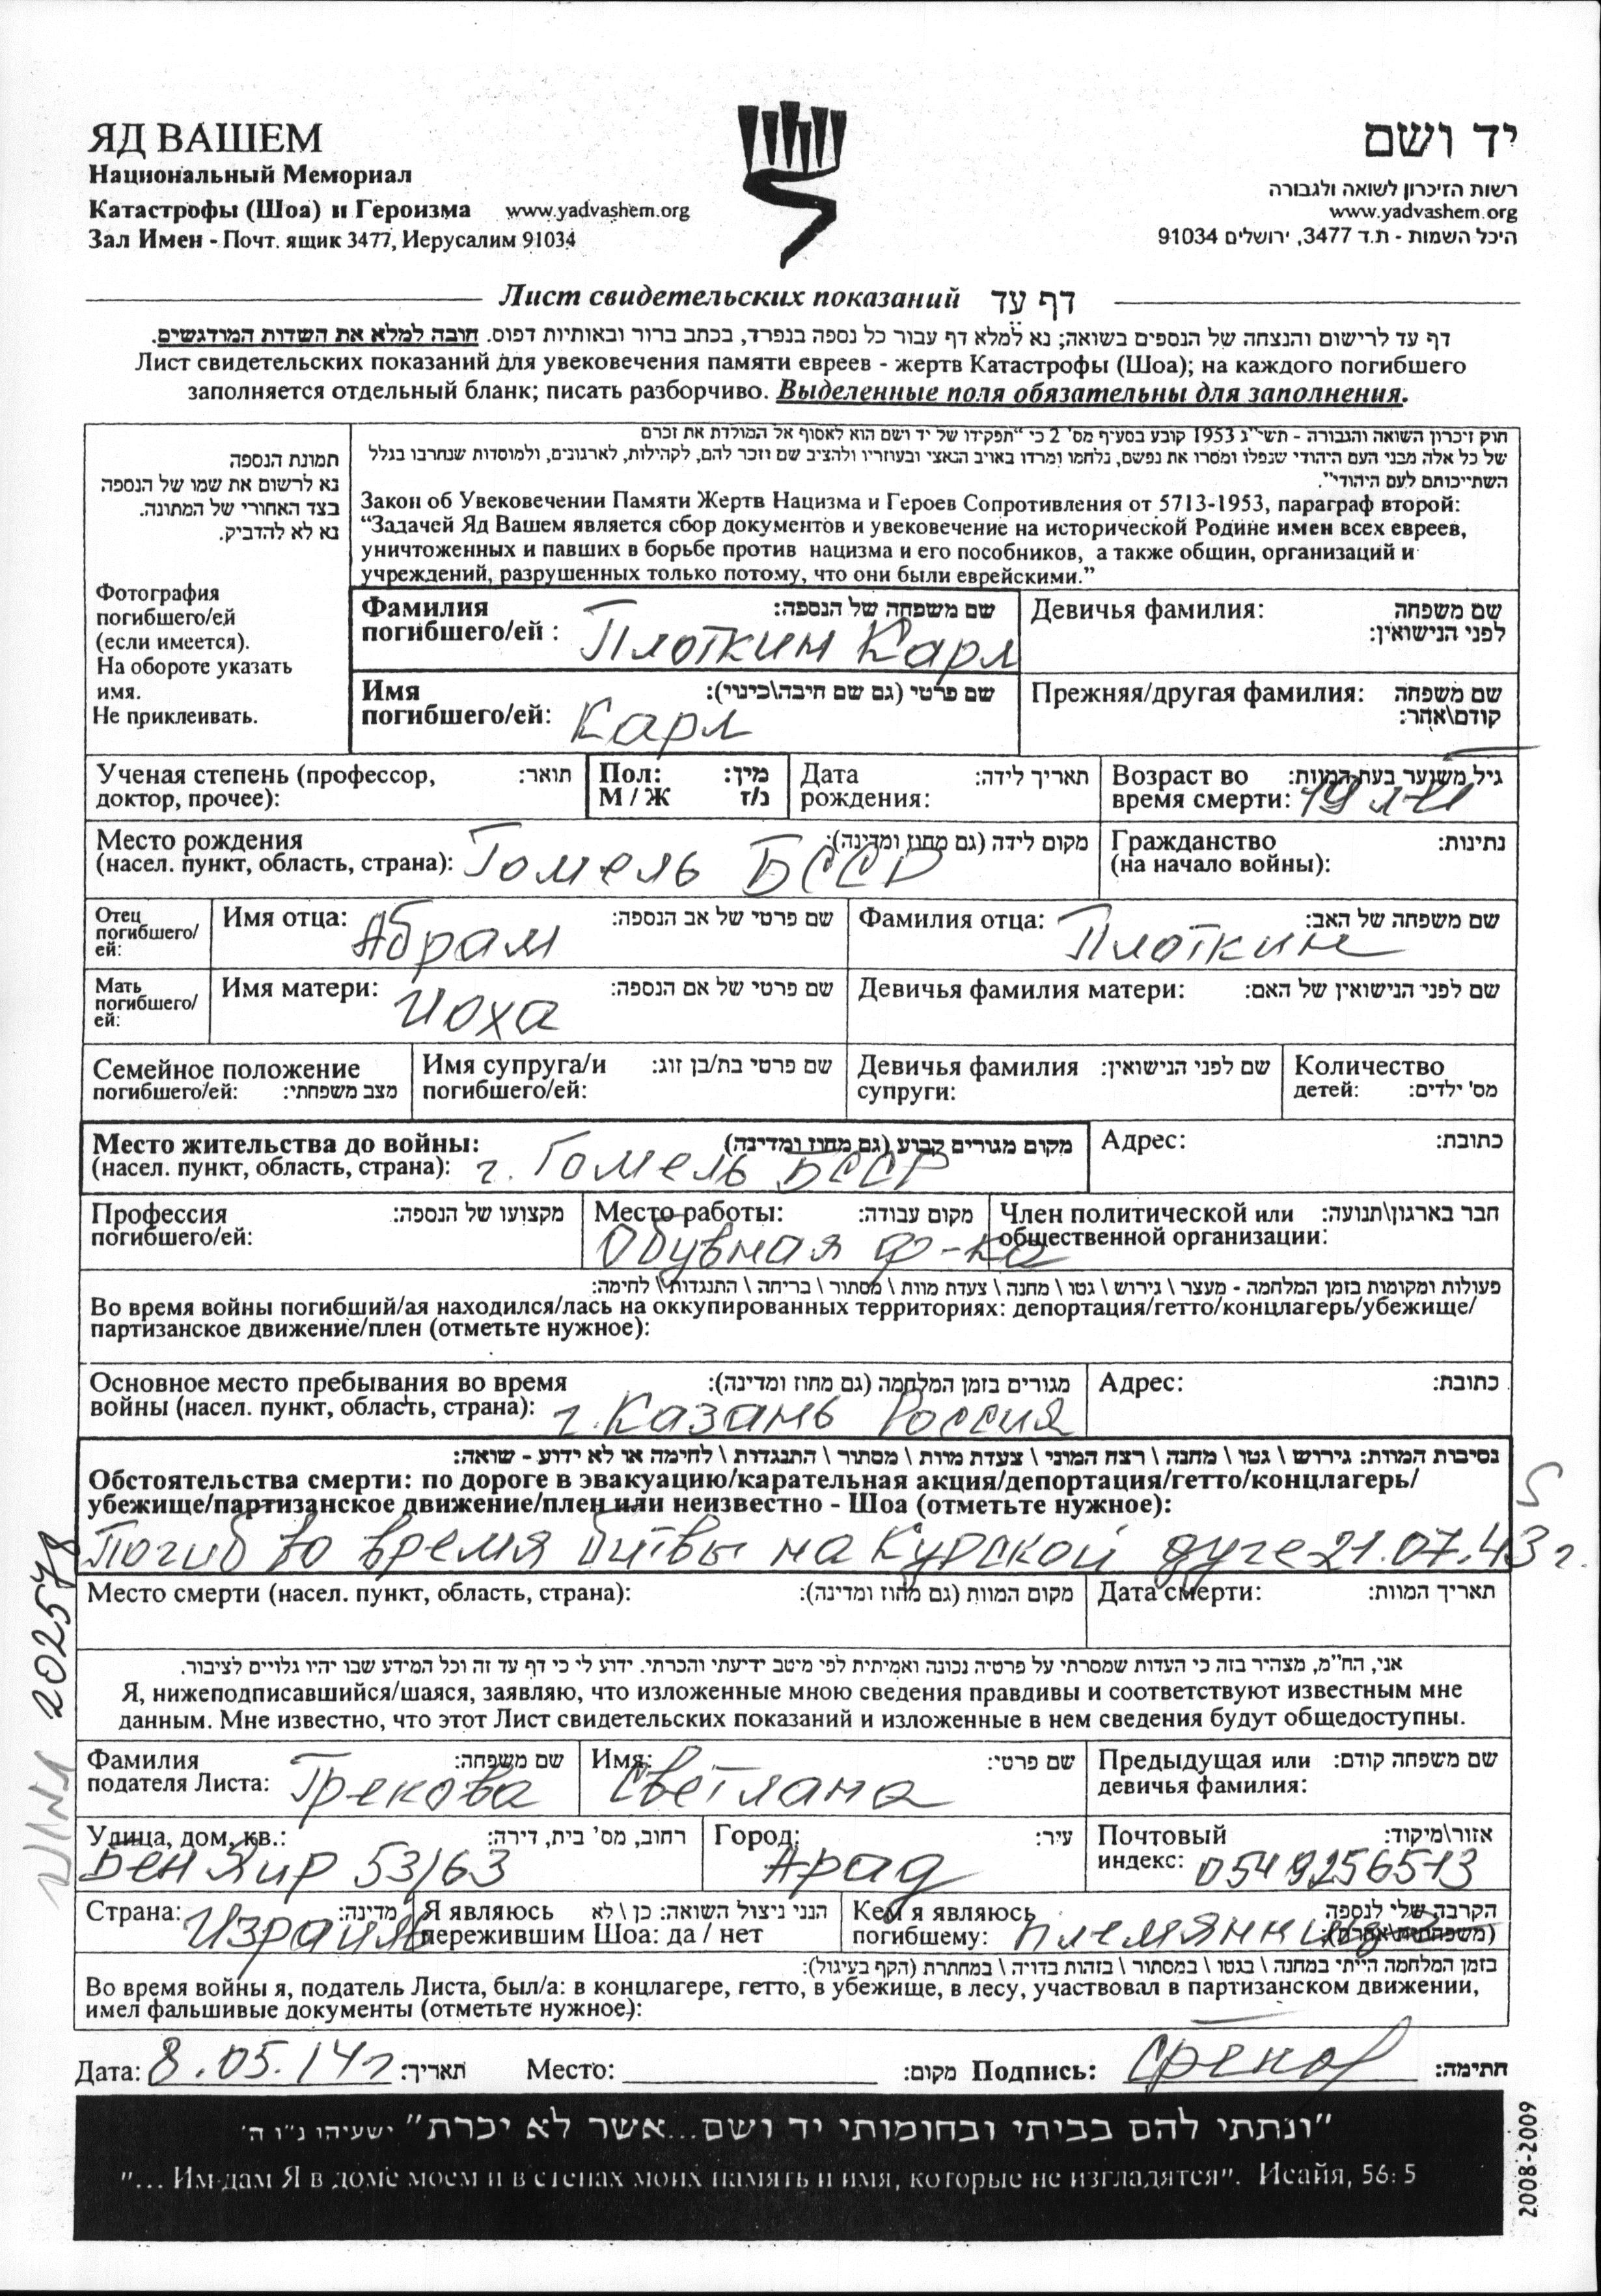 ЯД ВАШЕМ
Национальный Мемориал
Катастрофы (Шоа) и Героизма www.yadvashem.org
Зал Имен - Почт. ящик 3477, Иерусалим 91034
יד ושם
רשות הזיכרון לשואה ולגבורה
www.yadvashem.org
היכל השמות - ת.ד 3477, ירושלים 91034
Лист свидетельских показаний דף עד
דף עד לרישום והנצחה של הנספים בשואה; נא למלא דף עבור כל נספה בנפרד, בכתב ברור ובאותיות דפוס. חובה למלא את השדות המודגשים.
Лист свидетельских показаний для увековечения памяти евреев - жертв Катастрофы (Шоа); на каждого погибшего
заполняется отдельный бланк; писать разборчиво. Выделенные поля обязательны для заполнения.
תמונת הנספה
נא לרשום את שמו של הנספה
בצד האחורי של התמונה.
נא לא להדביק.
Фотография
погибшего/ей
(если имеется).
На обороте указать
имя.
Не приклеивать.
חוק זיכרון השואה והגבורה - תשי"ג 1953 קובע בסעיף מס' 2 כי "תפקידו של יד ושם הוא לאסוף אל המולדת את זכרם
של כל אלה מבני העם היהודי שנפלו ומסרו את נפשם, נלחמו ומרדו באויב הנאצי ובעוזריו ולהציב שם וזכר להם, לקהילות, לארגונים, ולמוסדות שנחרבו בגלל
השתייכותם לעם היהודי".
Закон об Увековечении Памяти Жертв Нацизма и Героев Сопротивления от 5713-1953, параграф второй:
"Задачей Яд Вашем является сбор документов и увековечение на исторической Родине имен всех евреев,
уничтоженных и павших в борьбе против нацизма и его пособников, а также общин, организаций и
учреждений, разрушенных только потому, что они были еврейскими."
Фамилия погибшего/ей : שם משפחה של הנספה: Плоткин Карл
Девичья фамилия: שם משפחה לפני הנישואין:
Имя погибшего/ей: שם פרטי (גם שם חיבה\כינוי): Карл
Прежняя/другая фамилия: שם משפחה קודם\אחר:
Ученая степень (профессор, доктор, прочее): תואר:
Пол: М / Ж מין: ז/נ
Дата рождения: תאריך לידה:
Возраст во время смерти: גיל משוער בעת המוות: 19
Место рождения (насел. пункт, область, страна): מקום לידה (גם מחוז ומדינה): Гомель БССР
Гражданство (на начало войны): נתינות:
Отец погибшего/ей:
Имя отца: שם פרטי של אב הנספה: Абрам
Фамилия отца: שם משפחה של האב: Плоткин
Мать погибшего/ей:
Имя матери: שם פרטי של אם הנספה: Иоха
Девичья фамилия матери: שם לפני הנישואין של האם:
Семейное положение погибшего/ей: מצב משפחתי:
Имя супруга/и погибшего/ей: שם פרטי בת/בן זוג:
Девичья фамилия супруги: שם לפני הנישואין:
Количество детей: מס' ילדים:
Место жительства до войны: (насел. пункт, область, страна): מקום מגורים קבוע (גם מחוז ומדינה) г. Гомель БССР
Адрес: כתובת:
Профессия погибшего/ей: מקצועו של הנספה:
Место работы: מקום עבודה: Обувная ф-ка
Член политической или общественной организации: חבר בארגון\תנועה:
פעולות ומקומות בזמן המלחמה - מעצר \ גירוש \ גטו \ מחנה \ צעדת מוות \ מסתור \ בריחה \ התנגדות \ לחימה:
Во время войны погибший/ая находился/лась на оккупированных территориях: депортация/гетто/концлагерь/убежище/
партизанское движение/плен (отметьте нужное):
Основное место пребывания во время войны (насел. пункт, область, страна): מגורים בזמן המלחמה (גם מחוז ומדינה): г. Казань Россия
Адрес: כתובת:
נסיבות המוות: גירוש \ גטו \ מחנה \ רצח המוני \ צעדת מוות \ מסתור \ התנגדות \ לחימה או לא ידוע - שואה:
Обстоятельства смерти: по дороге в эвакуацию/карательная акция/депортация/гетто/концлагерь/
убежище/партизанское движение/плен или неизвестно - Шоа (отметьте нужное):
Погиб во время битвы на Курской дуге 21.07.43 г.
Место смерти (насел. пункт, область, страна): מקום המוות (גם מחוז ומדינה):
Дата смерти: תאריך המוות:
אני, הח"מ, מצהיר בזה כי העדות שמסרתי על פרטיה נכונה ואמיתית לפי מיטב ידיעתי והכרתי. ידוע לי כי דף עד זה וכל המידע שבו יהיו גלויים לציבור.
Я, нижеподписавшийся/шаяся, заявляю, что изложенные мною сведения правдивы и соответствуют известным мне
данным. Мне известно, что этот Лист свидетельских показаний и изложенные в нем сведения будут общедоступны.
Фамилия подателя Листа: שם משפחה: Грекова
Имя: שם פרטי: Светлана
Предыдущая или девичья фамилия: שם משפחה קודם:
Улица, дом, кв.: רחוב, מס' בית, דירה: Бен Яир 53/63
Город: עיר: Арад
Почтовый индекс: אזור\מיקוד: 0549256513
Страна: מדינה: Израиль
Я являюсь пережившим Шоа: да / нет הנני ניצול השואה: כן \ לא
Кем я являюсь погибшему: הקרבה שלי לנספה (משפחתית\אחרת): племянница
בזמן המלחמה הייתי במחנה \ בגטו \ במסתור \ בזהות בדויה \ במחתרת (הקף בעיגול):
Во время войны я, податель Листа, был/а: в концлагере, гетто, в убежище, в лесу, участвовал в партизанском движении,
имел фальшивые документы (отметьте нужное):
Дата: 8.05.14г תאריך: Место: מקום: Подпись: חתימה:
"ונתתי להם בביתי ובחומותי יד ושם...אשר לא יכרת" ישעיהו נ"ו ה'
"... Им дам Я в доме моем и в стенах моих память и имя, которые не изгладятся". Исайя, 56: 5
2008-2009
202578